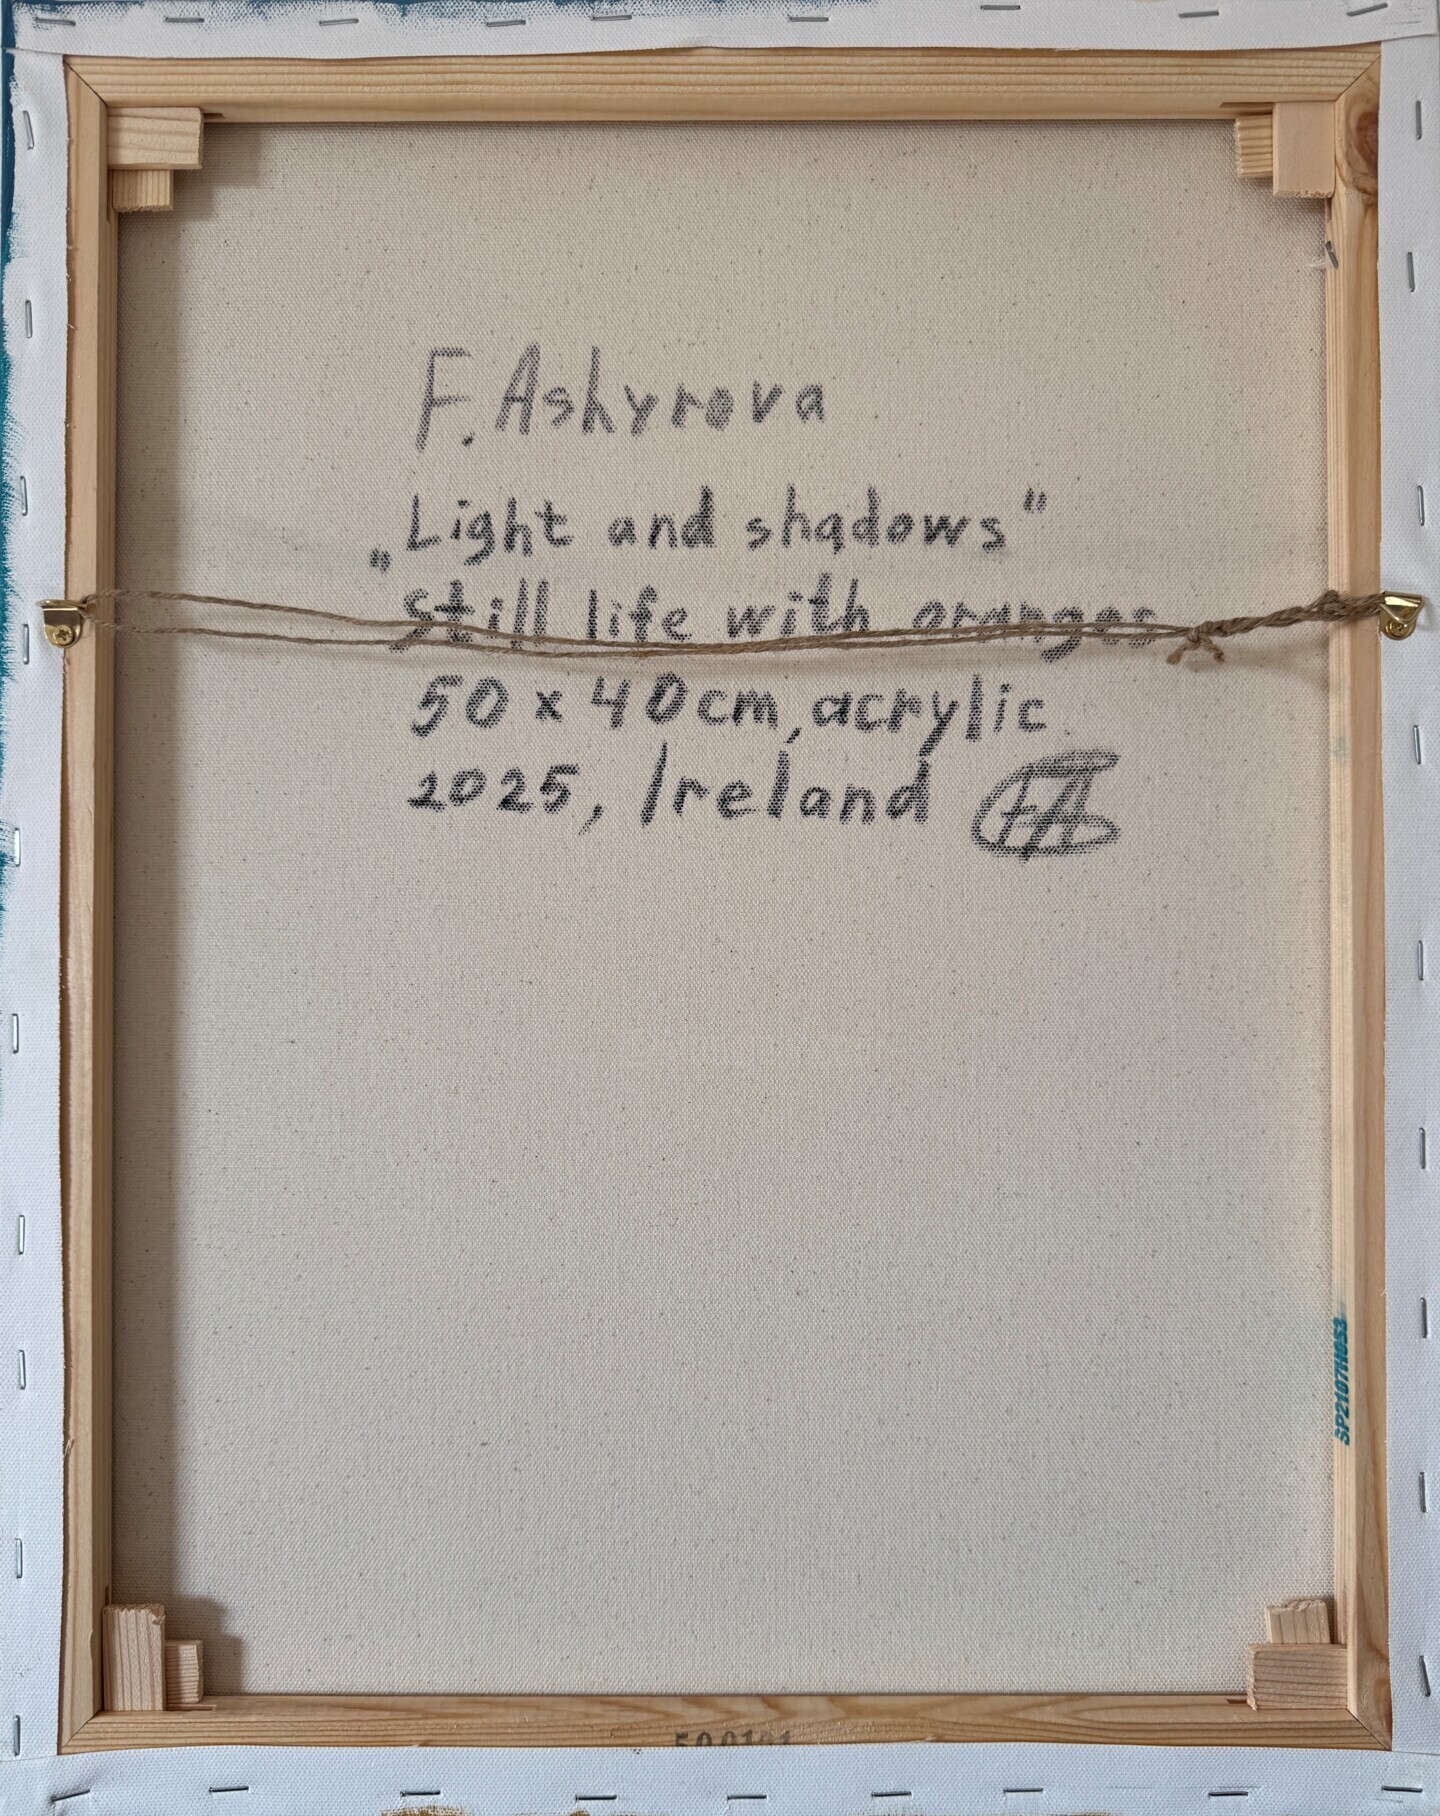 F. Ashyrova
„Light and shadows"
Still life with oranges
50 x 40cm, acrylic
2025, Ireland FA
SP2107H053